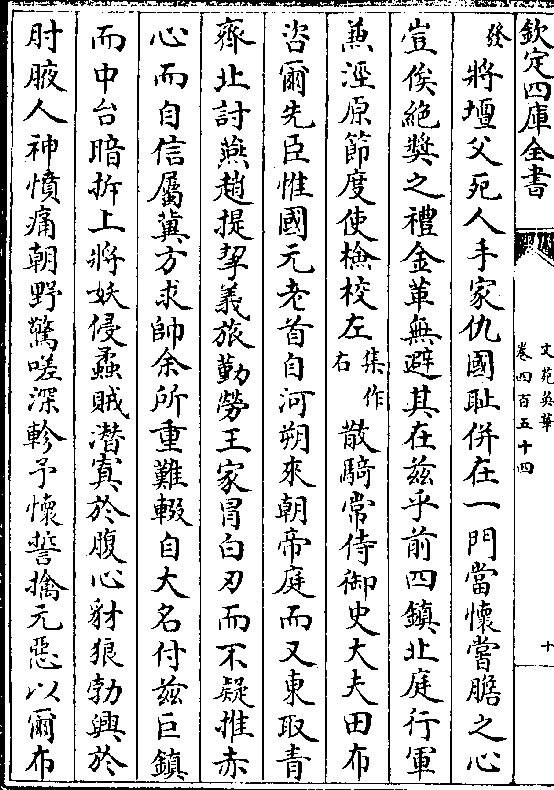 欽定四庫全書
文苑英華
卷四百五十四
十
發將壇父死人手家仇國恥併在一門當懷嘗膽之心
豈俟絶獎之禮金革無避其在兹乎前四鎮北庭行軍
兼涇原節度使檢校左集作右散騎常侍御史大夫田布
咨爾先臣惟國元老首自河朔來朝帝庭而又東取青
齊北討燕趙提挈義旅勤勞王家冒白刃而不疑推赤
心而自信屬冀方求帥余所重難輟自大名付兹巨鎮
而中台暗拆上將妖侵蟊賊潛寘於腹心豺狼勃興於
肘腋人神憤痛朝野驚嗟深軫予懷誓擒元惡以爾布